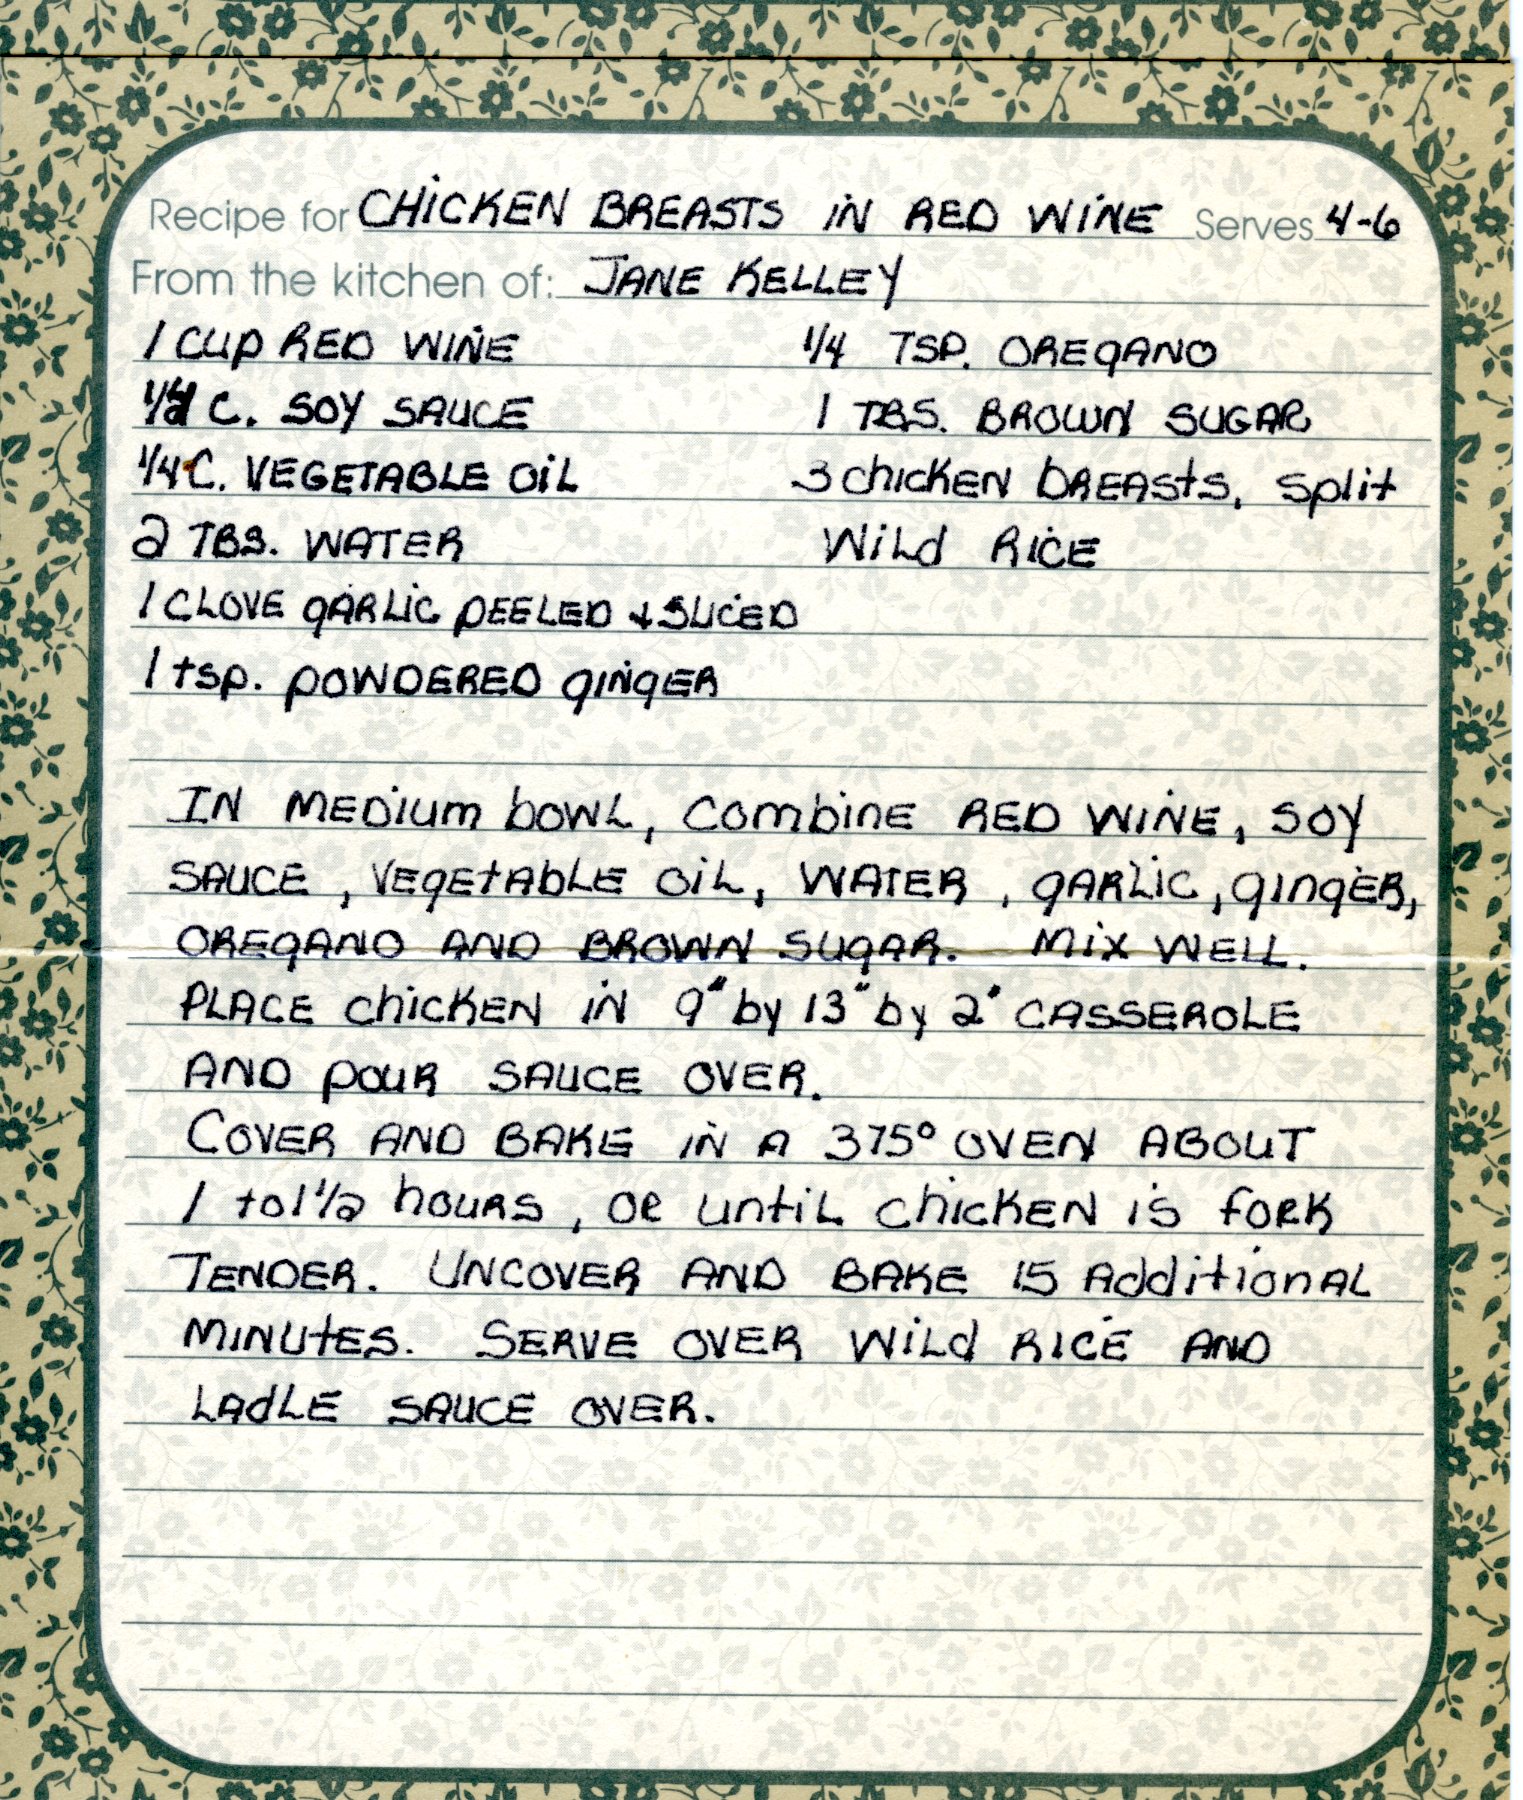 Recipe for CHiCKEN BREASTS iN RED WiNE Serves 4-6
From the kitchen of: JANE KELLEY
1 CUP RED WiNE
C. SOY SAUCE
1/4 C. VEGETABLE OiL
2 TBS. WATER
1 CLOVE gARLiC pEELED + SLiCED
1 tsp. pOWDERED giNgER
1/4 TSP. OREgANO
1 TBS. BROWN SUGAR
3 chicKEN bREASts, Split
WiLd RiCE
IN MEDium bOWL, combinE RED WiNE, SOY
SAUCE, VEgEtAbLE OiL, WATER, gARLiC, gingER,
OREgANO AND BROWN SUgAR. MiX WELL.
PLACE chicKEN iN 9" by 13" by 2" CASSEROLE
AND pOUR SAUCE OVER.
COVER AND BAKE iN A 375° OVEN ABOUT
1 to 1 1/2 hOURS, OR untiL chicKEN iS fORK
TENDER. UNCOVER AND BAKE 15 AdditionAL
MiNUtES. SERVE OVER WiLd RiCE AND
LAdLE SAUCE OVER.